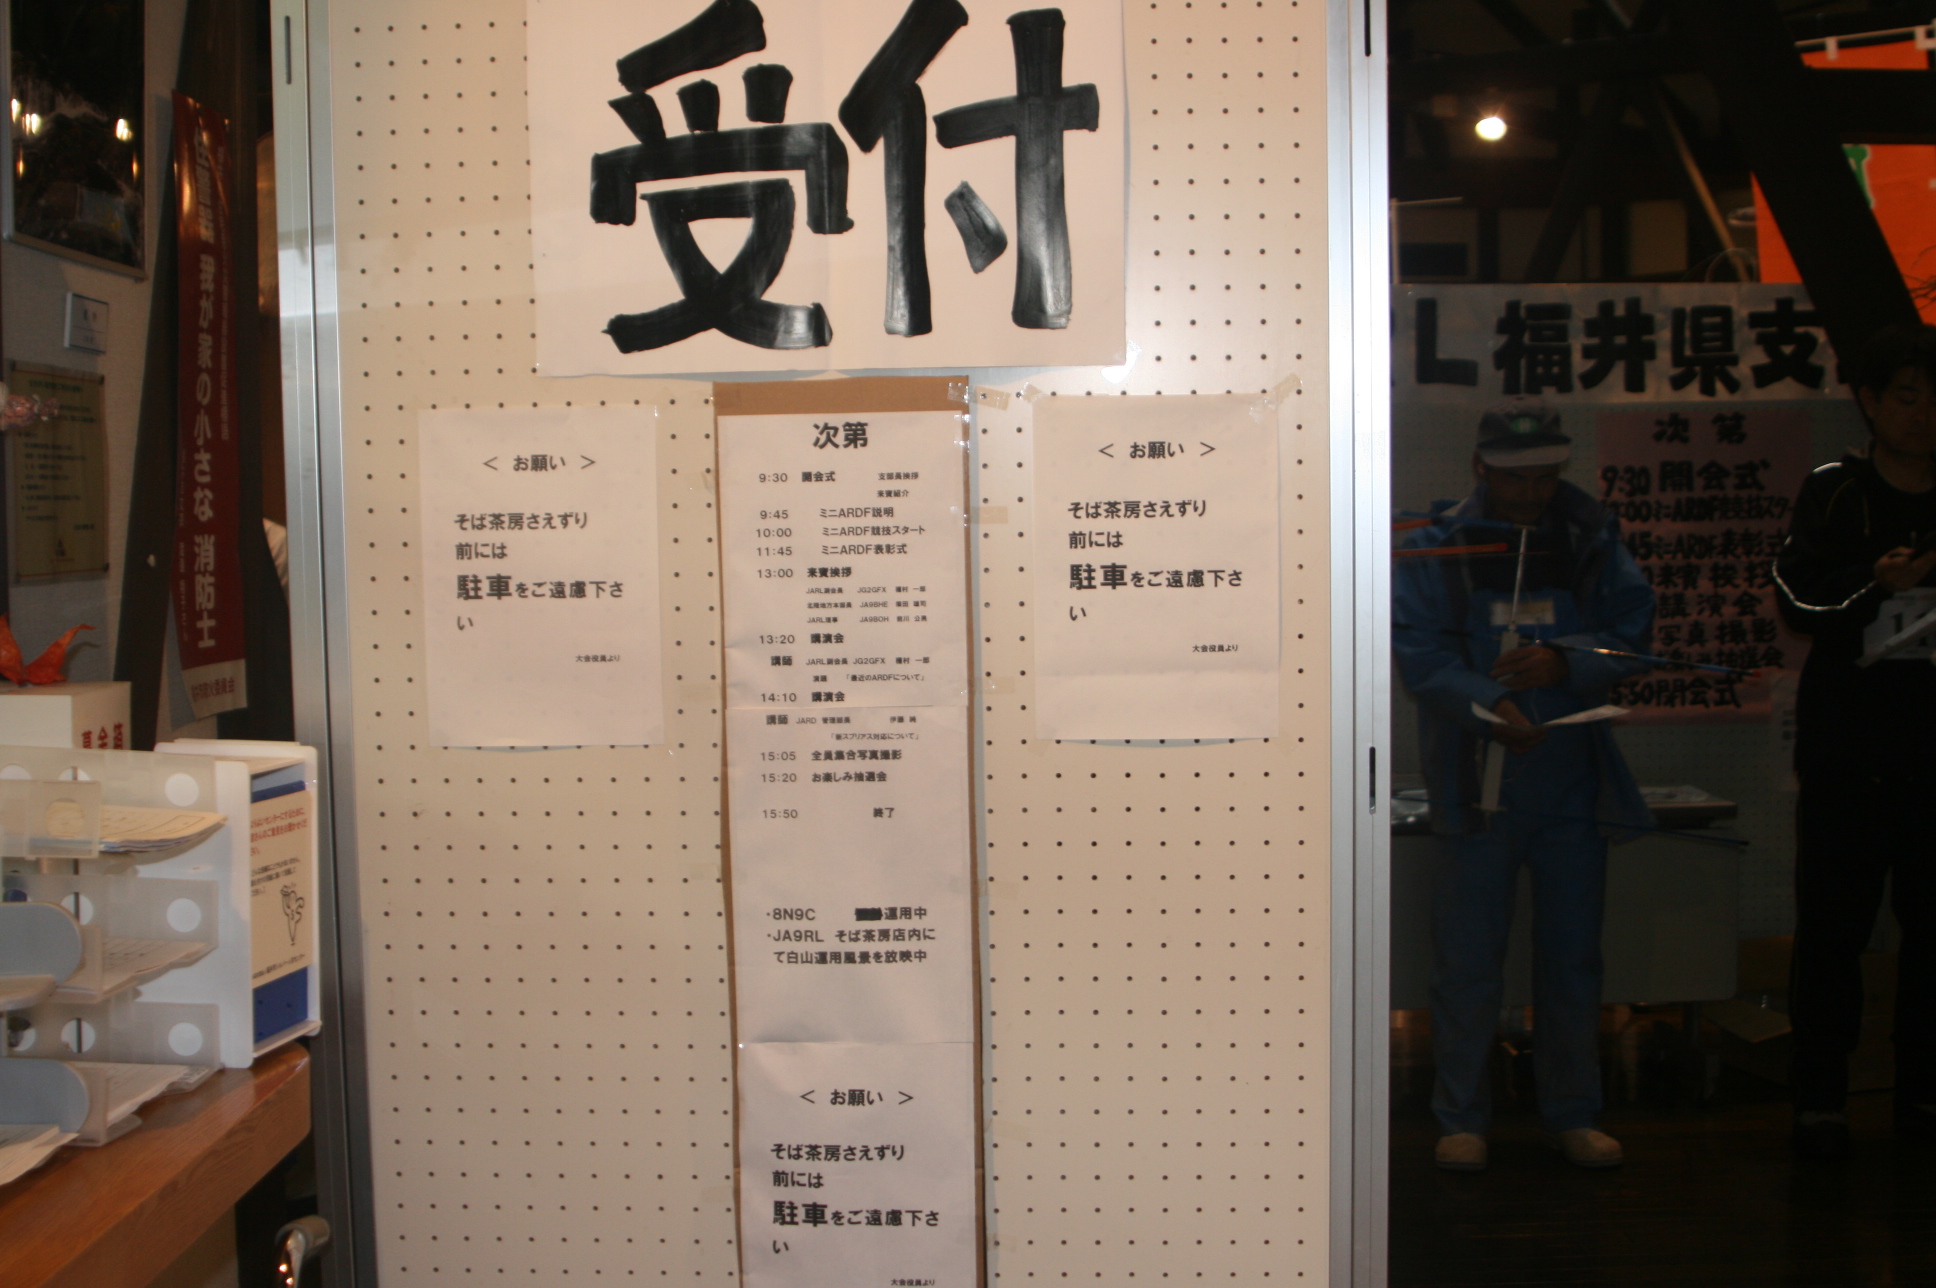 受付
< お願い >
そば茶房さえずり
前には
駐車をご遠慮下さ
い
大会役員より
次第
9:30 開会式 支部長挨拶
来賓紹介
9:45 ミニARDF説明
10:00 ミニARDF競技スタート
11:45 ミニARDF表彰式
13:00 来賓挨拶
JARL副会長 JG2GFX 種村 一郎
北陸地方本部長 JA9BHE
JARL理事 JA9BOH 前川 公男
13:20 講演会
講師 JARL副会長 JG2GFX 種村 一郎
演題 「最近のARDFについて」
14:10 講演会
講師 JARD 管理部長 伊藤
「新スプリアス対応について」
15:05 全員集合写真撮影
15:20 お楽しみ抽選会
15:50 終了
・8N9C 運用中
・JA9RL そば茶房店内に
て白山運用風景を放映中
< お願い >
そば茶房さえずり
前には
駐車をご遠慮下さ
い
大会役員より
< お願い >
そば茶房さえずり
前には
駐車をご遠慮下さ
い
大会役員より
我が家の小さな消防士
L福井県支
次第
9:30 開会式
ミニARDF競技スター
45ミニARDF表彰式
来賓挨拶
講演会
写真撮影
抽選会
5:50閉会式